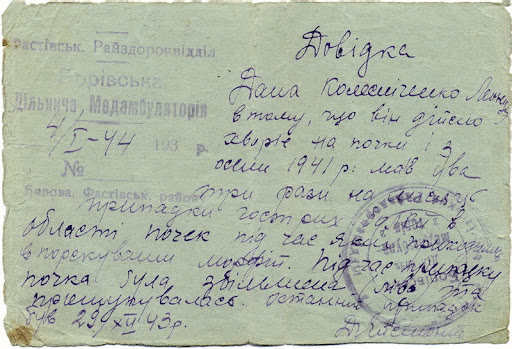 Фастівськ. Райздороввідділ
Борівська
Дільнича Медамбулаторія
4/I-44 193 р.
№
Борова, Фастівськ. району
Довідка
Дана Колісніченко
в тому, що він дійсно
хворіє на почки і з
осени 1941 р. мав два
три рази на
припадки гострих в
області почек під час яких приходилось
впорскувати морфій. Під час припадку
почка була збільшена та
прощупувалась. Останній припадок
був 29/XII 43 р.